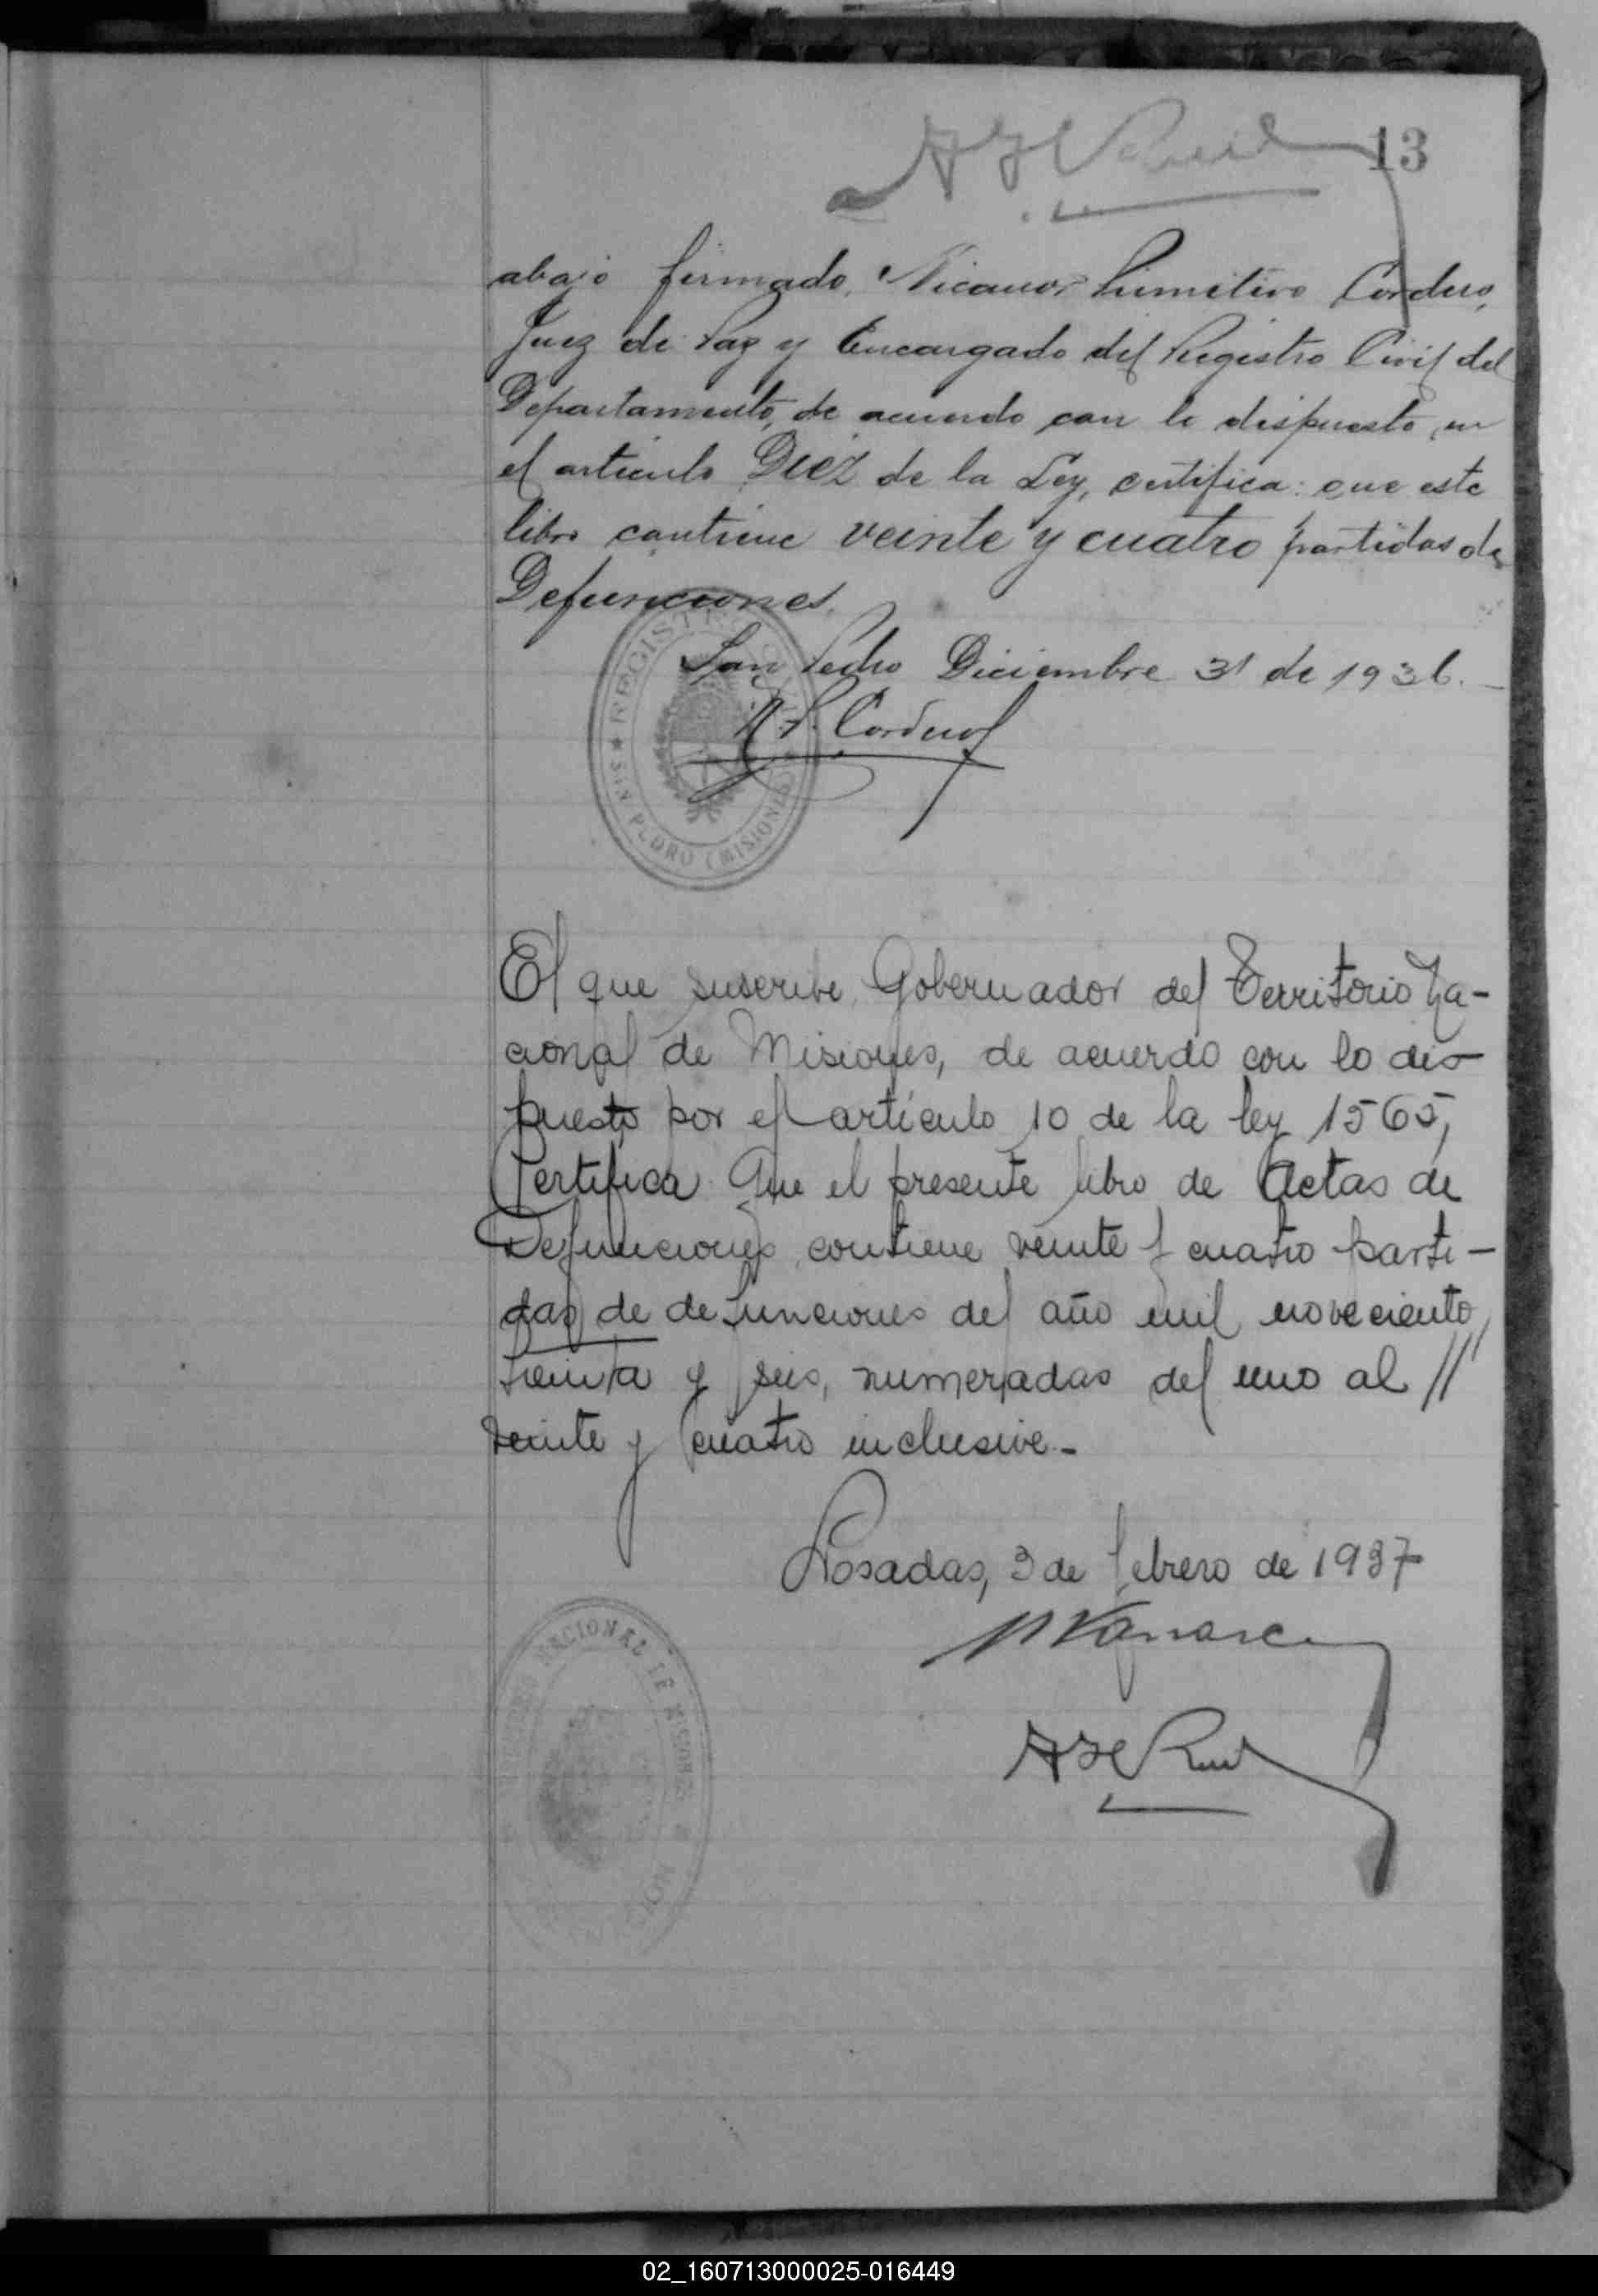 13
abajo firmado, Nicanor Primitivo Cordero,
Juez de Paz y Encargado del Registro Civil del
Departamento, de acuerdo con lo dispuesto en
el artículo Diez de la Ley, certifica: que este
libro contiene veinte y cuatro partidas de
Defunciones.
San Pedro Diciembre 31 de 1936.
N. P. Cordero
REGISTRO CIVIL
SAN PEDRO (MISIONES)
El que suscribe, Gobernador del Territorio Na-
cional de Misiones, de acuerdo con lo dis-
puesto por el artículo 10 de la ley 1565,
Certifica: Que el presente libro de Actas de
Defunciones, contiene veinte y cuatro parti-
das de defunciones del año mil noveciento
treinta y seis, numeradas del uno al //
veinte y cuatro inclusive.-
Posadas, 3 de febrero de 1937
NACIONAL DE MISIONES
02_160713000025-016449